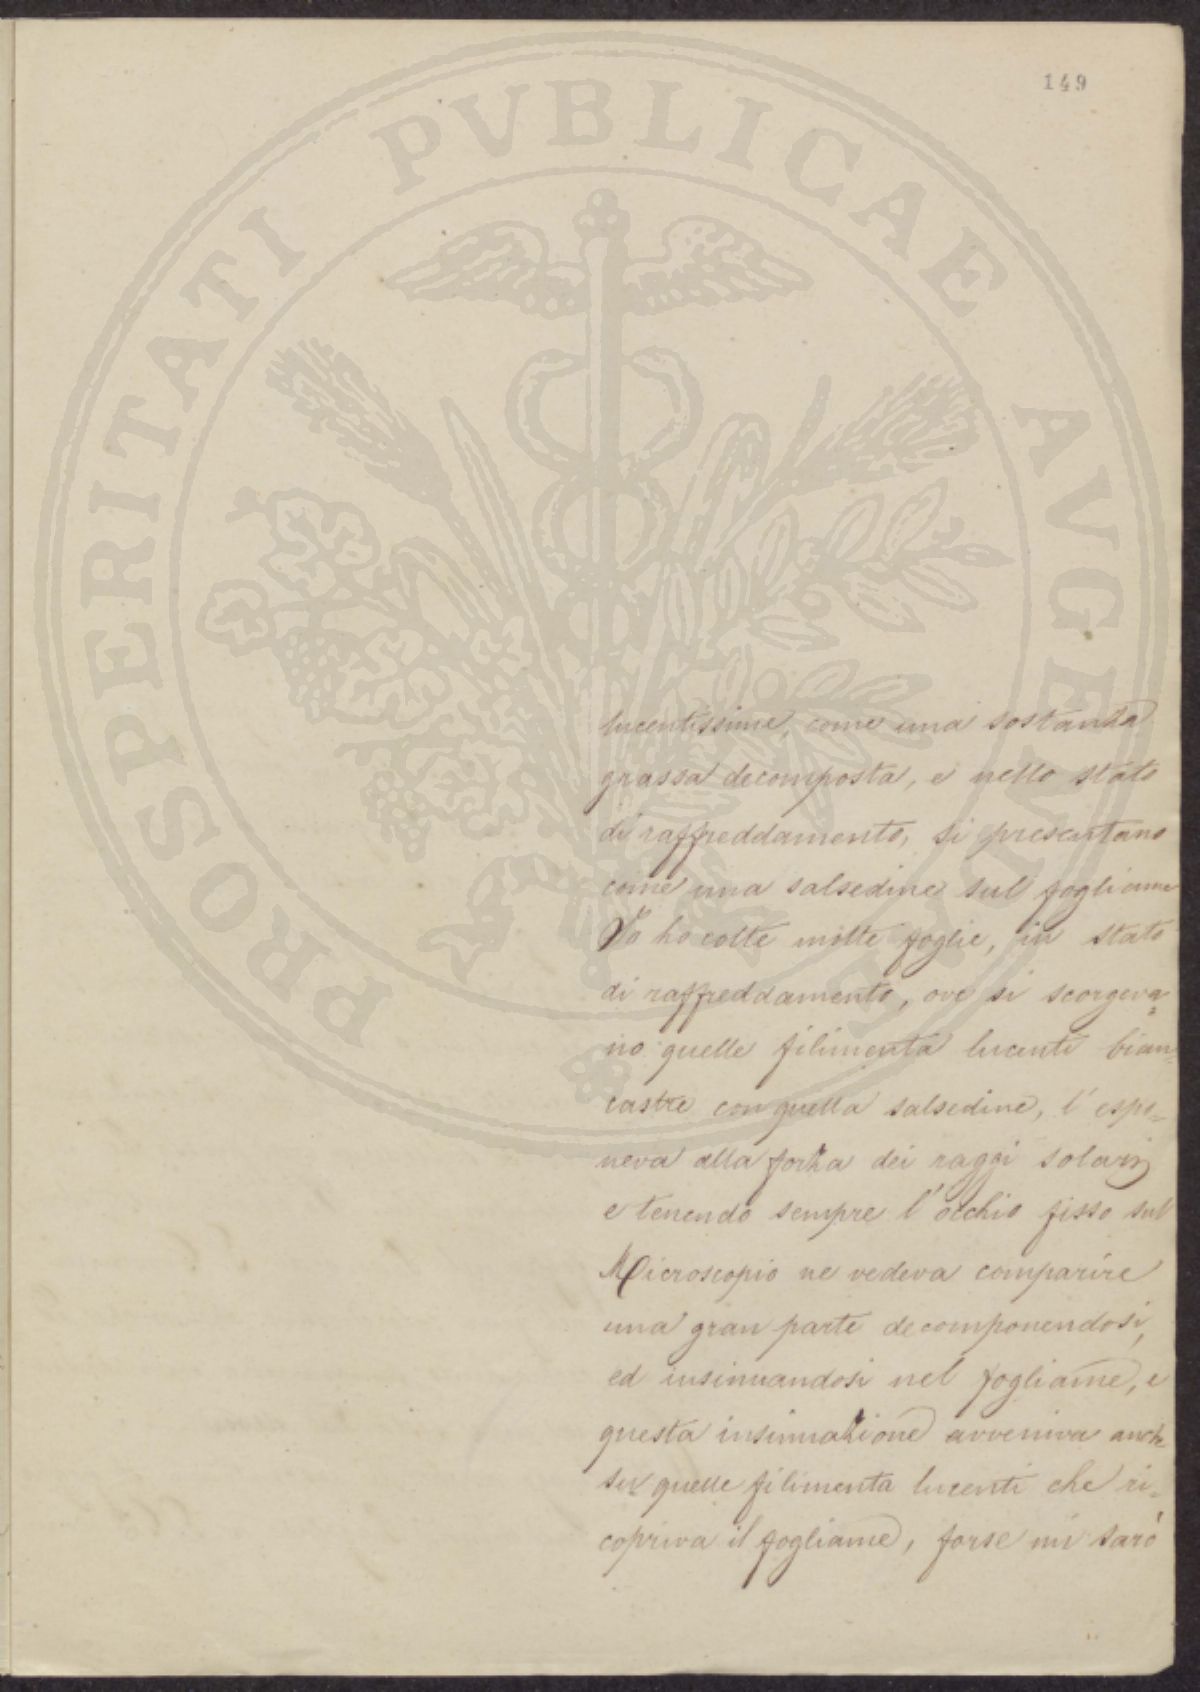 149
PROSPERITATI PVBLICAE AVGENDAE
lucentissime, come una sostanza
grassa decomposta, e nello stato
di raffreddamento, si presentano
come una salsedine sul fogliame
Io ho colte molte foglie, in stato
di raffreddamento, ove si scorgeva-
no quelle filimenta lucenti bian-
castre con quella salsedine, l'espo-
neva alla forza dei raggi solari
e tenendo sempre l'occhio fisso sul
Microscopio ne vedeva comparire
una gran parte decomponendosi,
ed insinuandosi nel fogliame, e
questa insinuazione avveniva anche
su quelle filimenta lucenti che ri-
copriva il fogliame, forse mi sarò